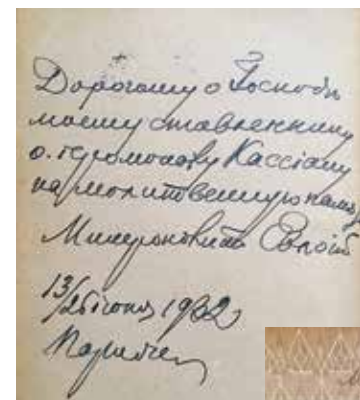 Дорогому о Господѣ
моему ставленнику
о. іеромонаху Кассіану
на молитвенную память
Митрополитъ Евлогій
13/26 іюня 1932
Парижъ